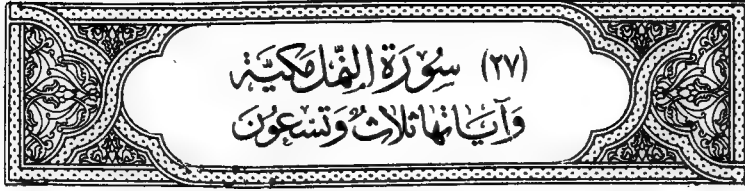 (٢٧) سُوْرَة النَّمل مَكيَّة
وَآياتها ثلاث وَتسْعُون